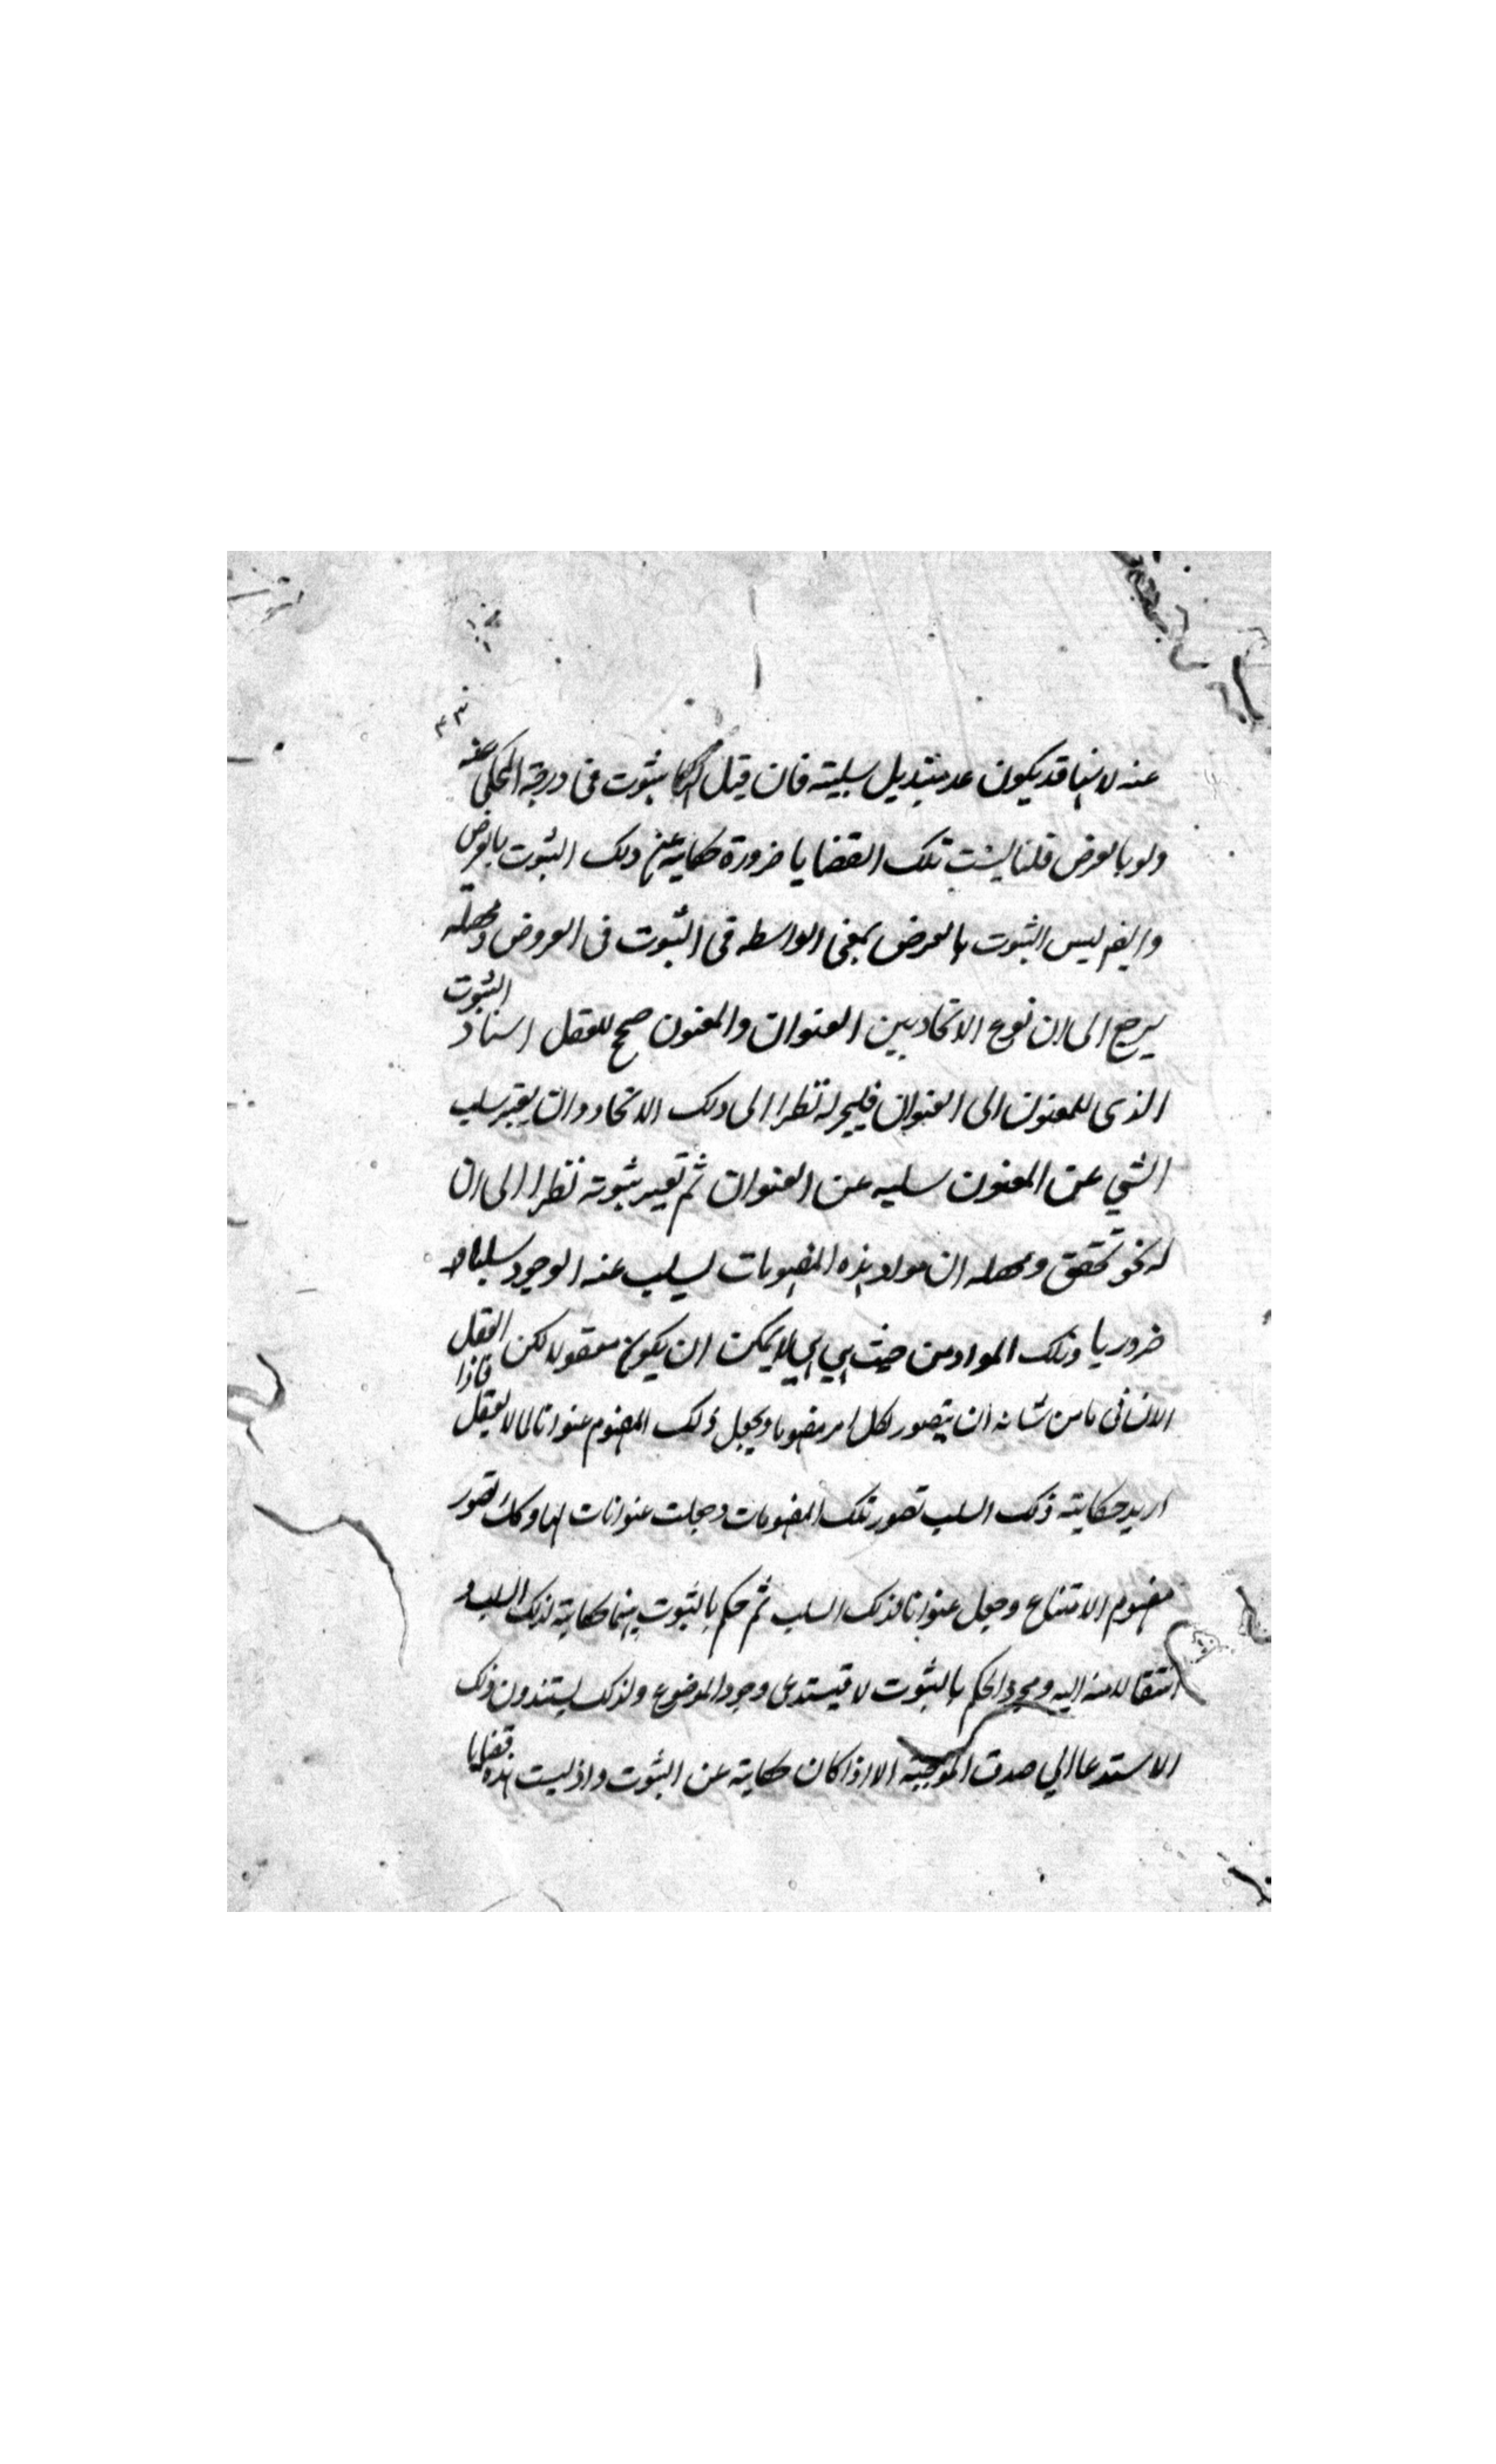 عنه لانها قد يكون عد بتبديل سلبيته فان قيل ثبوت فى درجة المحكى عنه
ولو بالعرض قلنا ليست تلك القضايا ضرورة حكايته عن ذلك الثبوت بالعرض
وايضا ليس الثبوت بالعرض بمعنى الواسطه فى الثبوت فى العروض ومحصله
يرجع الى ان نوع الاتحاد بين العنوان والمعنون صحح للعقل اسناد الثبوت
الذى للمعنون الى العنوان نظرا الى ذلك الاتحاد وان يعتبر سلب
الشي عن المعنون سلبه عن العنوان ثم تعبير ثبوته نظرا الى ان
له نحو تحقق ومحصله ان مواد هذه المفهومات ليسلب عنه الوجود سلبا
ضروريا وتلك المواد من حيث هي هي لا يمكن ان يكون معقولا لكن العقل
الانسانى من شانه ان يتصور لكل امر مفهوما ويجعل ذلك المفهوم عنوانا لما لا يعقل فاذا
اريد حكاية ذلك السلب تصور تلك المفهومات وجعلت عنوانات لها وكك تصور
مفهوم الامتناع وجعل عنوانا لذلك السلب ثم حكم بالثبوت بينهما حكاية لذلك السلب و
انتقالا منه اليه ومجرد الحكم بالثبوت لا يستدعى وجود الموضوع ولذلك يستندون ذلك
الاستدعا الي صدق الموجبة الا اذا كان حكاية عن الثبوت واذ ليست هذه قضايا